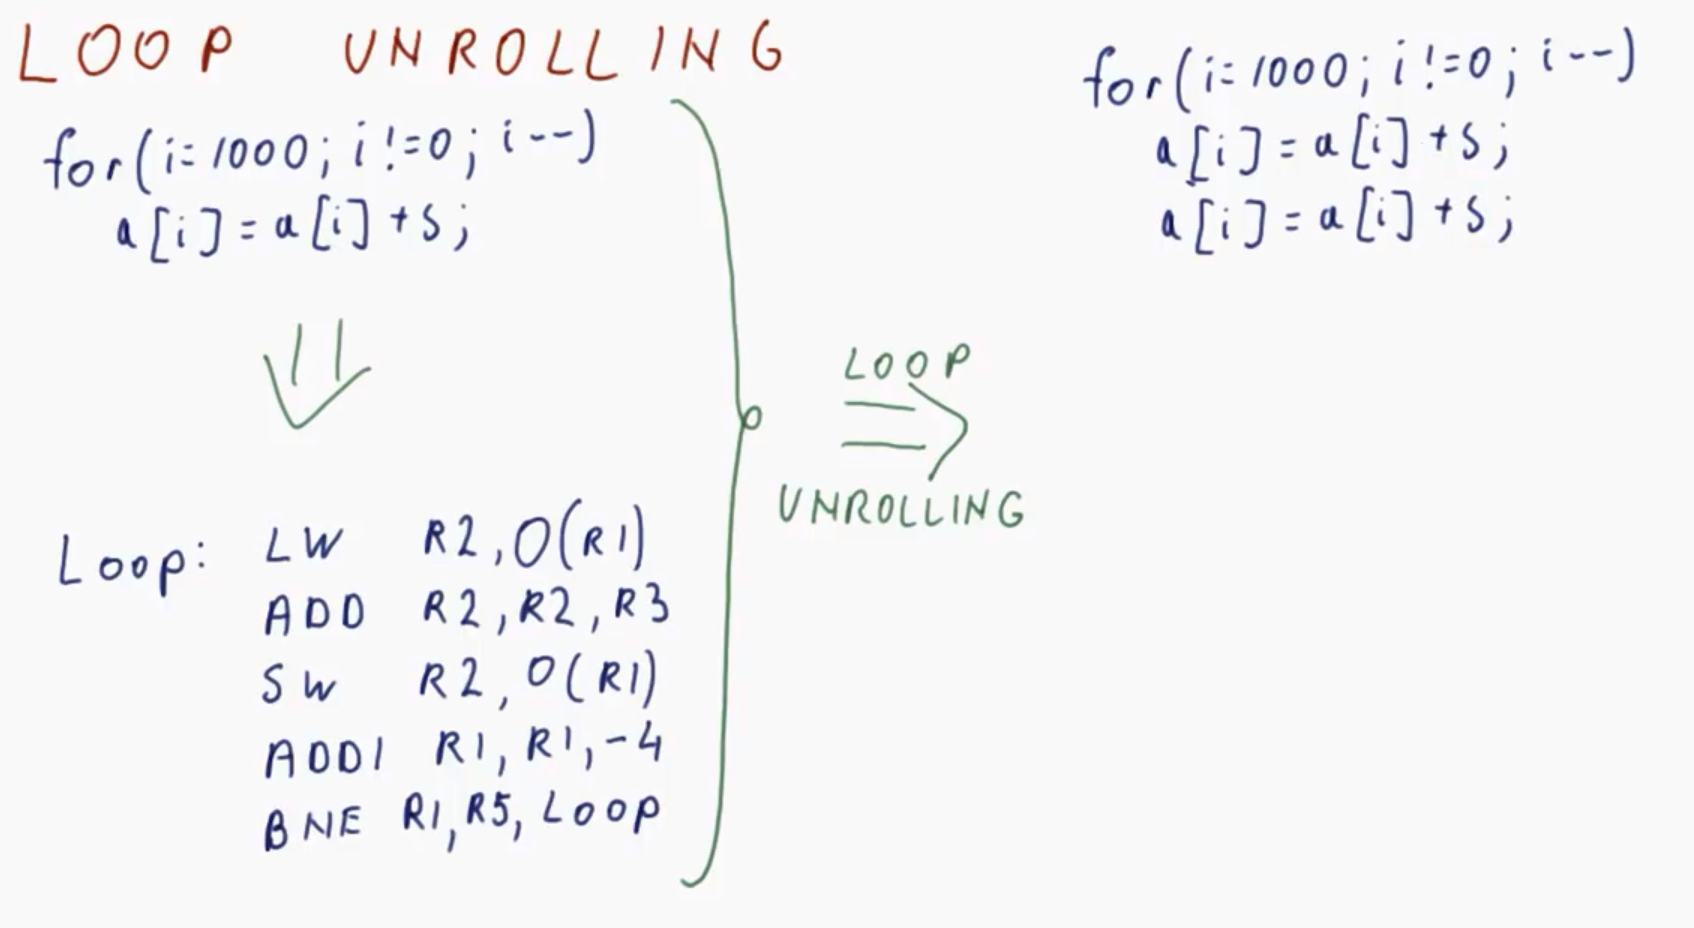 LOOP UNROLLING
for(i=1000; i!=0; i--)
a[i]=a[i]+s;
Loop: LW R2,0(R1)
ADD R2,R2,R3
SW R2,0(R1)
ADDI R1,R1,-4
BNE R1,R5,Loop
LOOP
UNROLLING
for(i=1000; i!=0; i--)
a[i]=a[i]+s;
a[i]=a[i]+s;